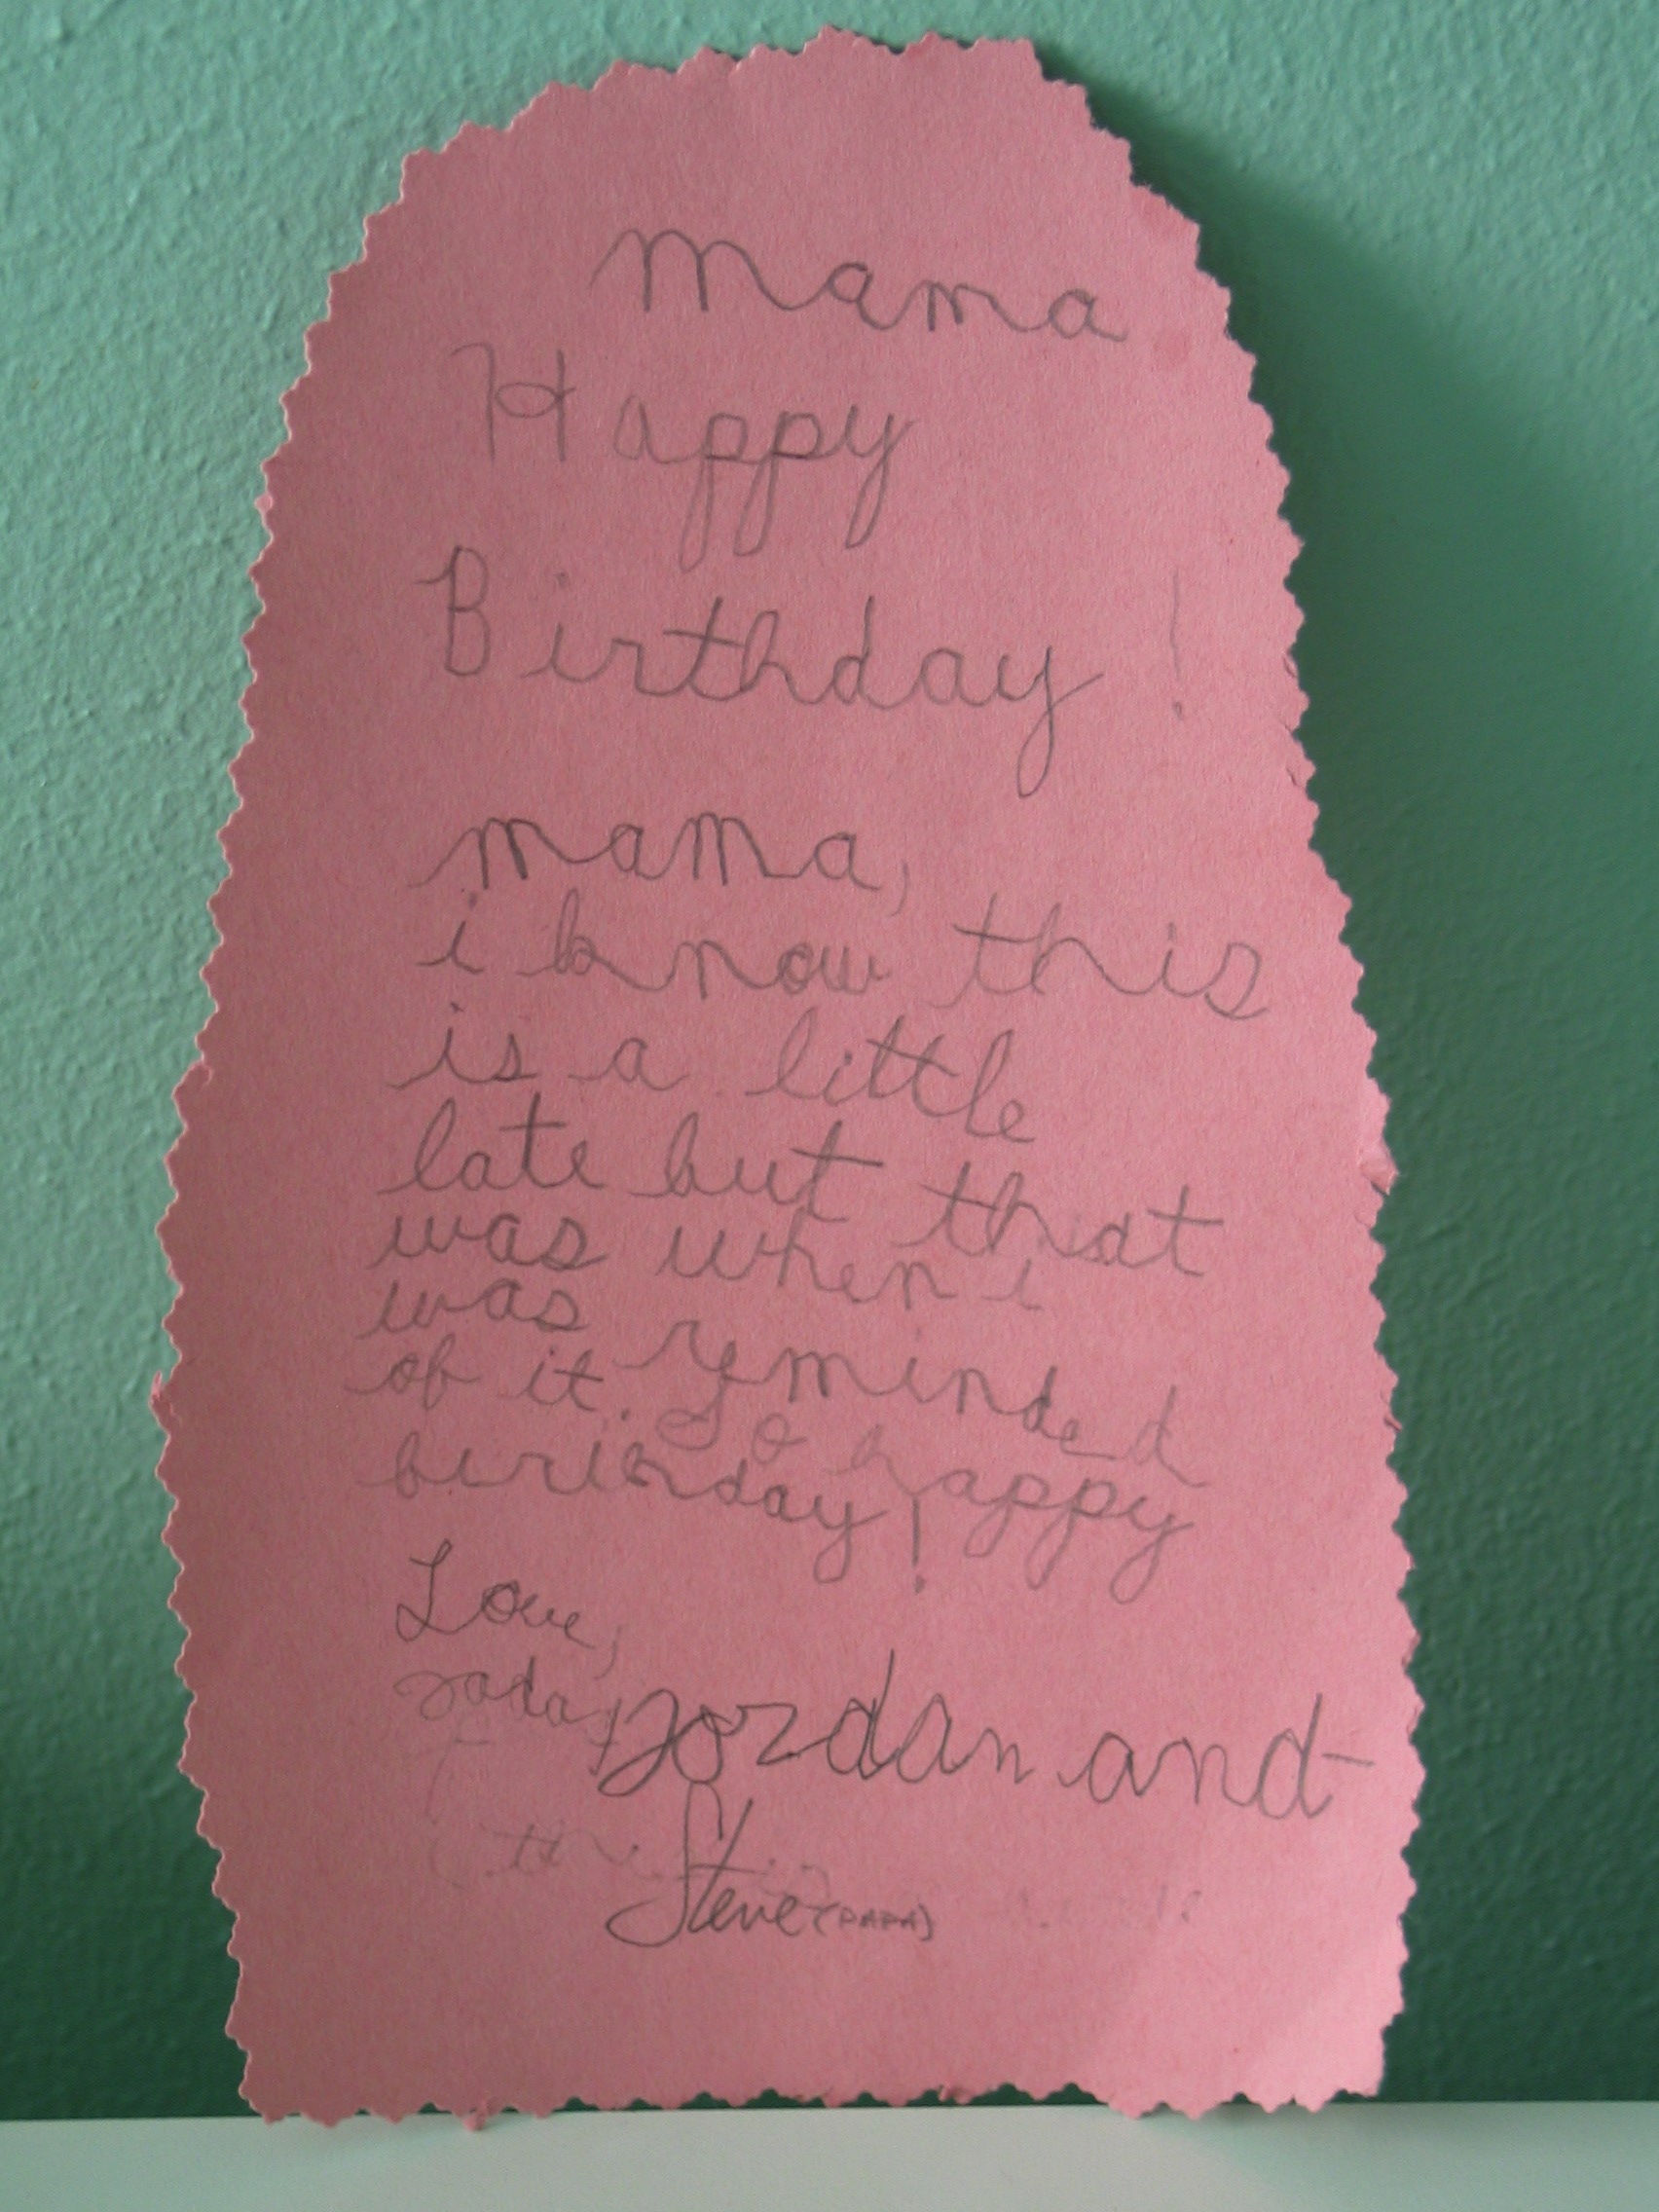 mama
Happy
Birthday!
mama,
i know this
is a little
late but that
was when i
was reminded
of it. So happy
birthday!
Love,
Jada, Jordan and
Steve (PAPA)